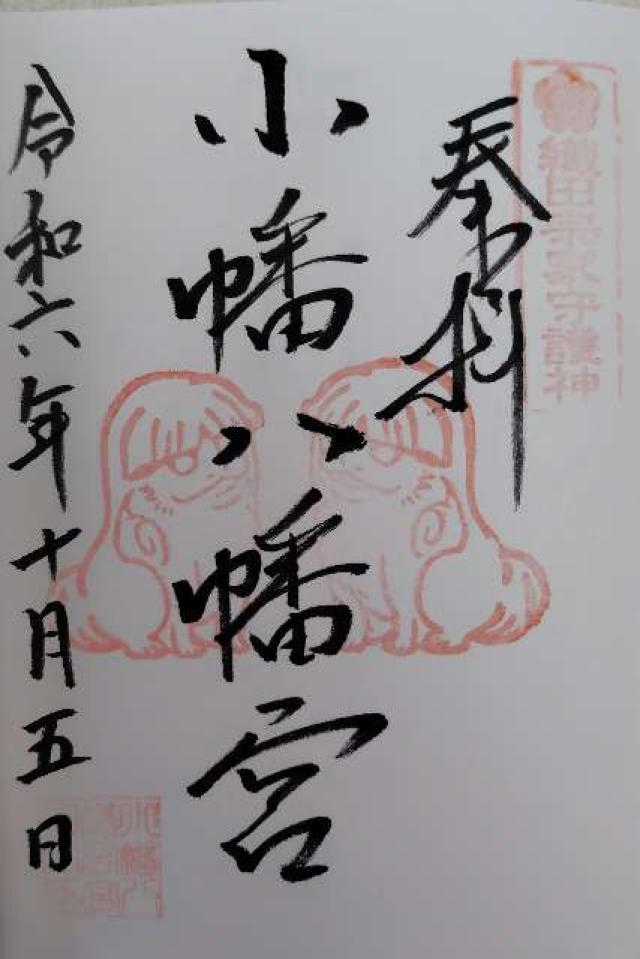 織田宗家守護神
奉拝
小幡八幡宮
令和六年十月五日